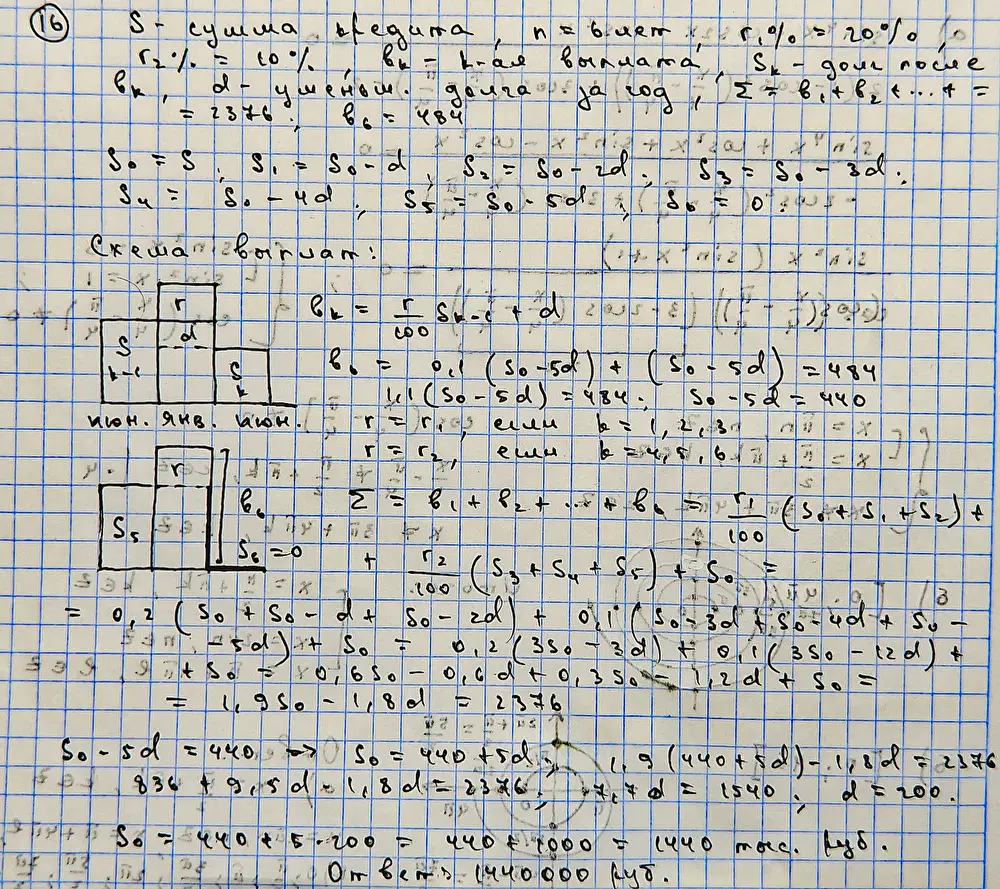 16 S - сумма кредита, n = 6 лет, r₁% = 20%,
r₂% = 10%, bₖ - k-ая выплата, Sₖ - долг после
bₖ, d - уменьш. долга за год, Σ = b₁ + b₂ + ... + =
= 2376; b₆ = 484
S₀ = S; S₁ = S₀ - d; S₂ = S₀ - 2d; S₃ = S₀ - 3d;
S₄ = S₀ - 4d; S₅ = S₀ - 5d; S₆ = 0.
Схема выплат:
r
d
Sₖ₋₁
Sₖ
июн. янв. июн.
bₖ = r/100 Sₖ₋₁ + d
b₆ = 0,1 (S₀ - 5d) + (S₀ - 5d) = 484
1,1 (S₀ - 5d) = 484; S₀ - 5d = 440
r = r₁, если k = 1, 2, 3
r = r₂, если k = 4, 5, 6
r
S₅
b₆
S₆ = 0
Σ = b₁ + b₂ + ... + b₆ = r₁/100 (S₀ + S₁ + S₂) +
+ r₂/100 (S₃ + S₄ + S₅) + S₀ =
= 0,2 (S₀ + S₀ - d + S₀ - 2d) + 0,1 (S₀ - 3d + S₀ - 4d + S₀ -
- 5d) + S₀ = 0,2 (3S₀ - 3d) + 0,1 (3S₀ - 12d) +
+ S₀ = 0,6S₀ - 0,6d + 0,3S₀ - 1,2d + S₀ =
= 1,9S₀ - 1,8d = 2376
S₀ - 5d = 440 → S₀ = 440 + 5d; 1,9 (440 + 5d) - 1,8d = 2376
836 + 9,5d - 1,8d = 2376; 7,7d = 1540; d = 200.
S₀ = 440 + 5·200 = 440 + 1000 = 1440 тыс. руб.
Ответ: 1440000 руб.